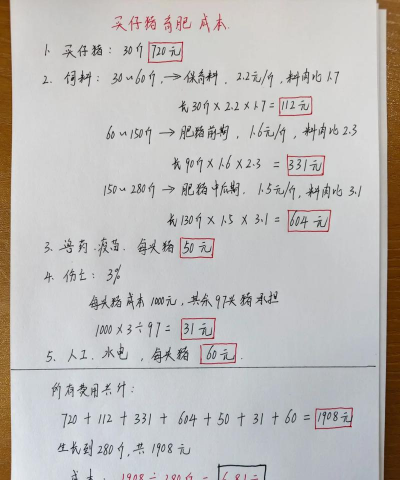 买仔猪育肥成本
1. 买仔猪：30斤 720元
2. 饲料：30~60斤，→保育料，2.2元/斤，料肉比1.7
长30斤×2.2×1.7=112元
60~150斤→肥猪前期，1.6元/斤，料肉比2.3
长90斤×1.6×2.3=331元
150~280斤→肥猪中后期，1.5元/斤，料肉比3.1
长130斤×1.5×3.1=604元
3、兽药、疫苗，每头猪50元
4、伤亡：3%
每头猪成本1000元，其余97头猪承担
1000×3÷97=31元
5、人工、水电，每头猪60元.
所有费用共计：
720+112+331+604+50+31+60=1908元
生长到280斤，共1908元
成本：1908÷280斤=6.81元